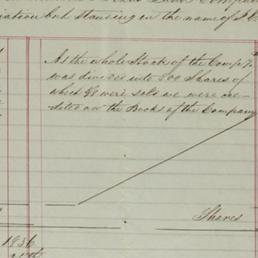 ation but standing in the name of J
As the whole Stock of the Comp'y.
was divided into 800 Shares of
which 98 were sold we were cre-
dited on the Books of the Company
Shares
1836